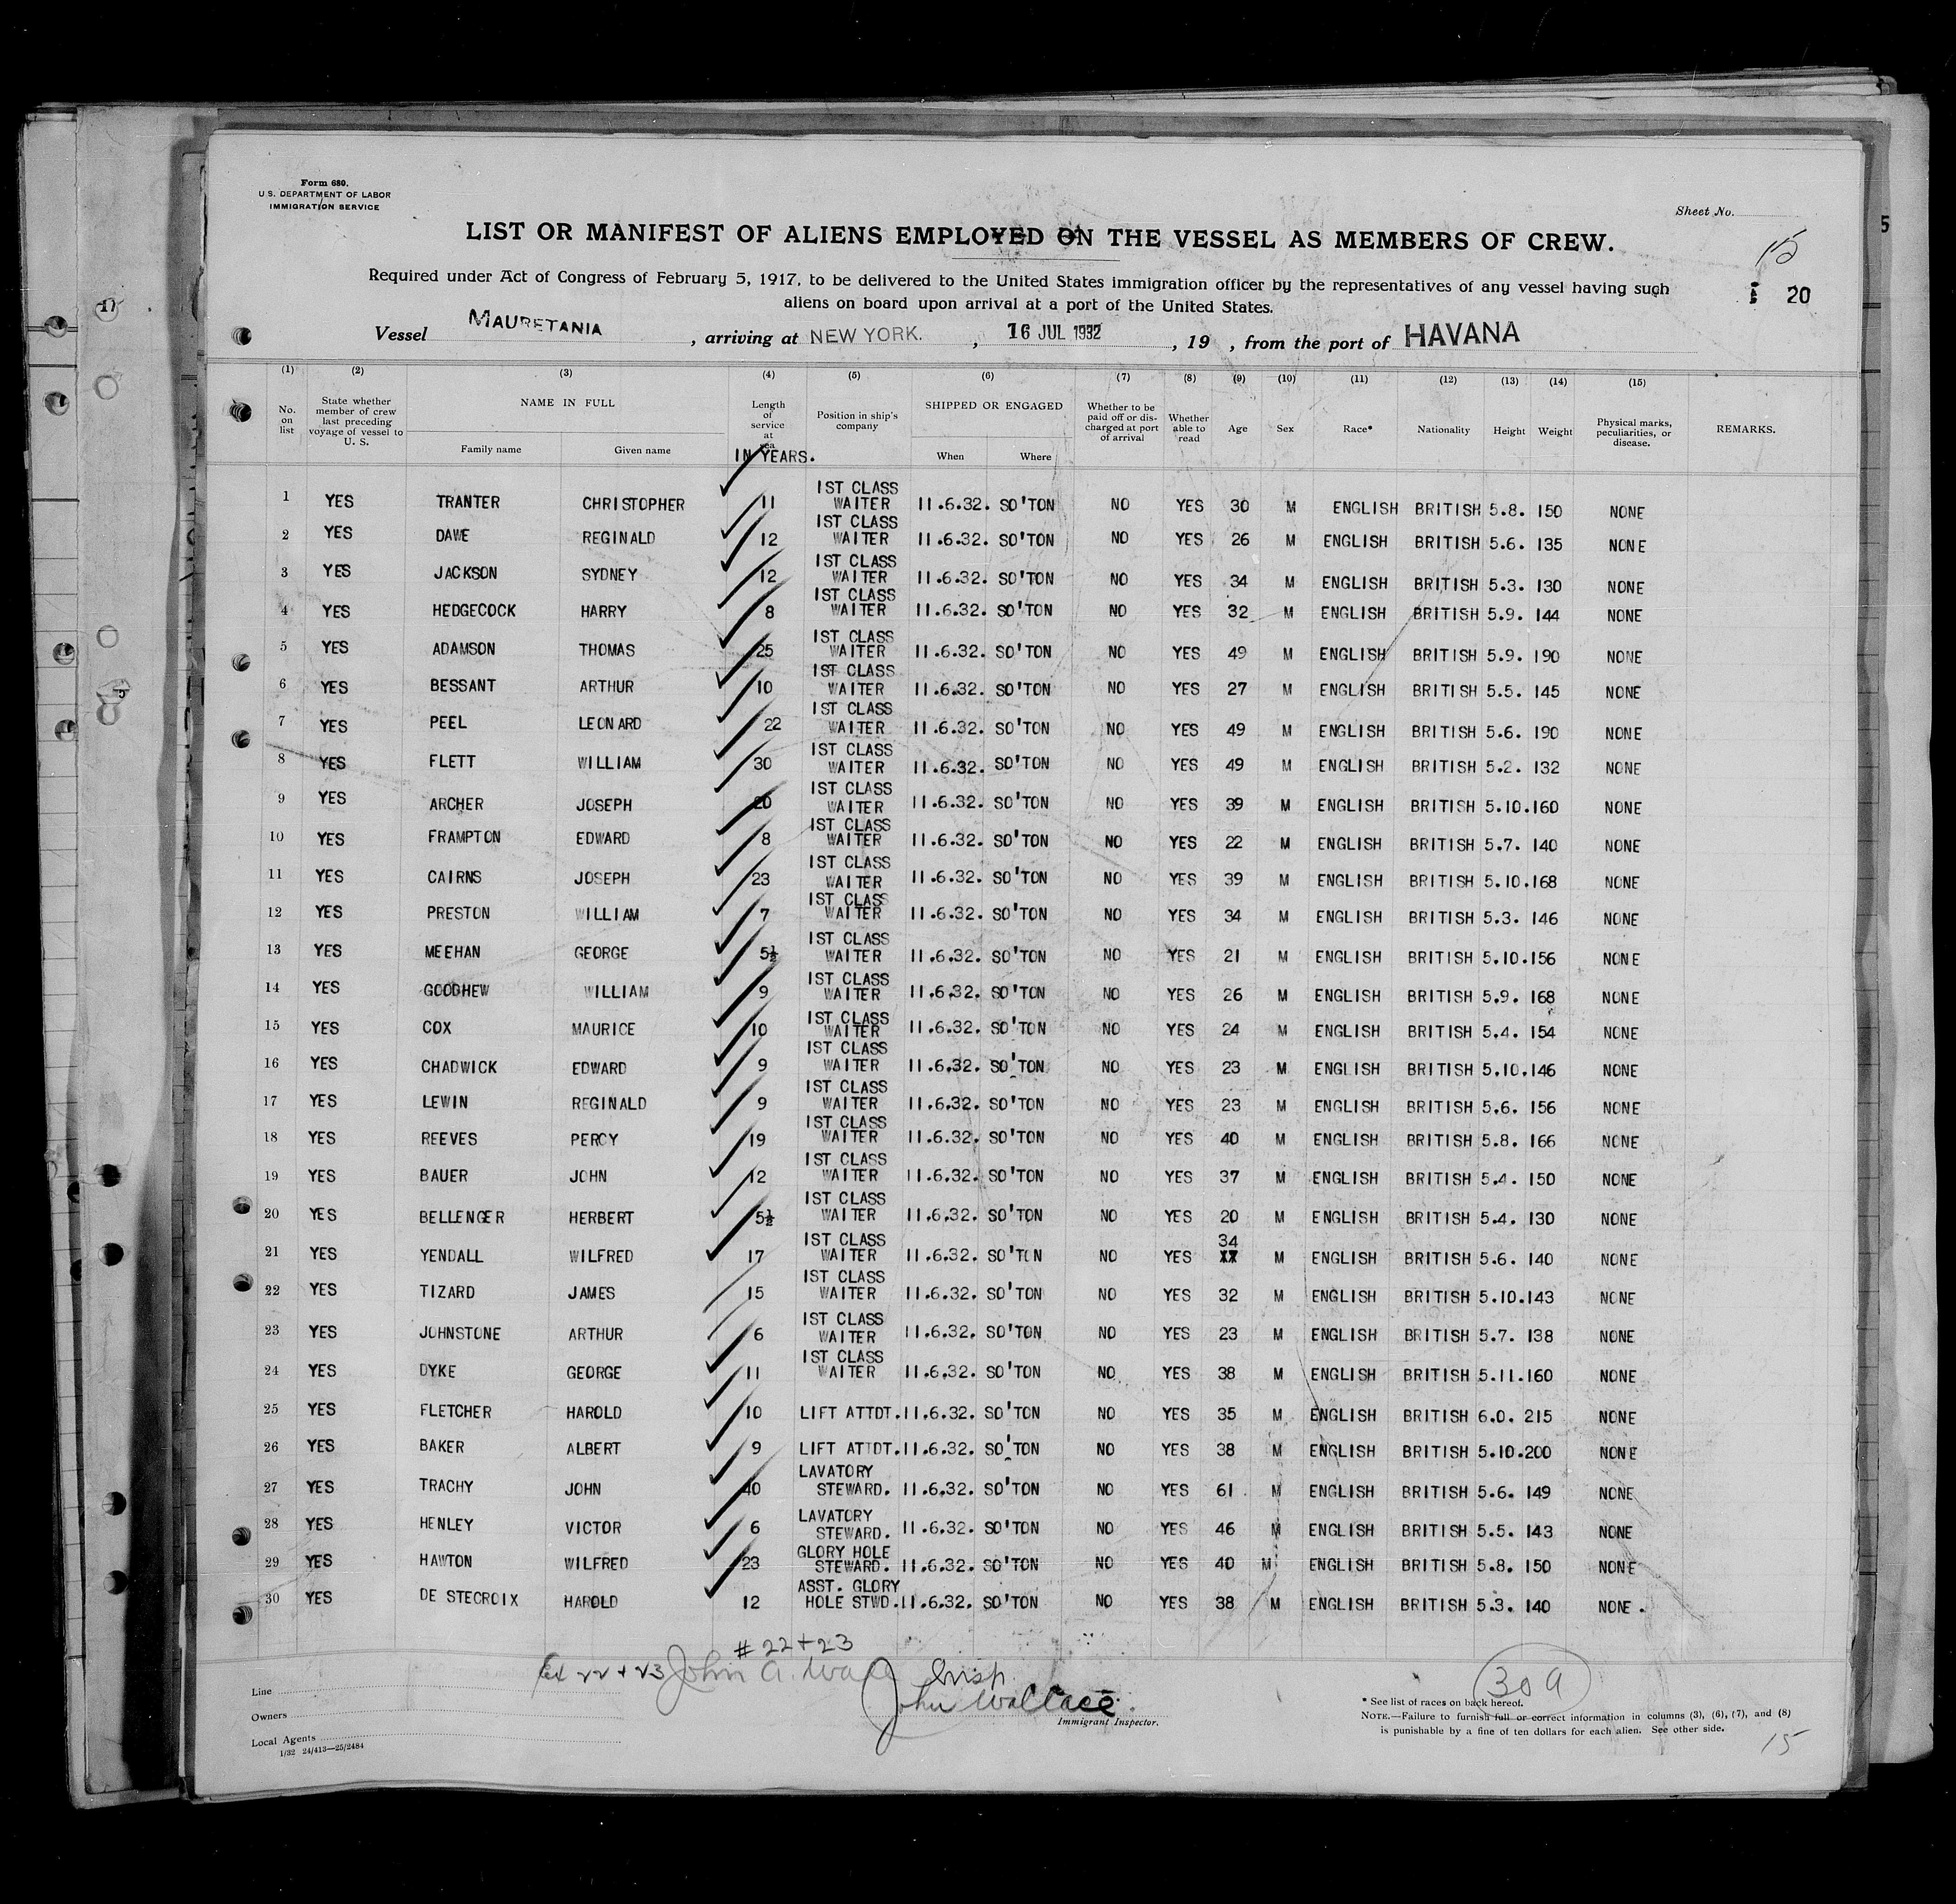 Form 680.
U.S. DEPARTMENT OF LABOR
IMMIGRATION SERVICE
Sheet No.
LIST OR MANIFEST OF ALIENS EMPLOYED ON THE VESSEL AS MEMBERS OF CREW.
15
Required under Act of Congress of February 5, 1917, to be delivered to the United States immigration officer by the representatives of any vessel having such
aliens on board upon arrival at a port of the United States.
20
Vessel MAURETANIA, arriving at NEW YORK. , 16 JUL 1932, 19 , from the port of HAVANA
(1) (2) (3) (4) (5) (6) (7) (8) (9) (10) (11) (12) (13) (14) (15)
No. on list State whether member of crew last preceding voyage of vessel to U. S. NAME IN FULL Family name Given name Length of service at sea IN YEARS. Position in ship's company SHIPPED OR ENGAGED When Where Whether to be paid off or discharged at port of arrival Whether able to read Age Sex Race* Nationality Height Weight Physical marks, peculiarities, or disease. REMARKS.
1 YES TRANTER CHRISTOPHER 11 1ST CLASS WAITER 11.6.32. SO'TON NO YES 30 M ENGLISH BRITISH 5.8. 150 NONE
2 YES DAWE REGINALD 12 1ST CLASS WAITER 11.6.32. SO'TON NO YES 26 M ENGLISH BRITISH 5.6. 135 NONE
3 YES JACKSON SYDNEY 12 1ST CLASS WAITER 11.6.32. SO'TON NO YES 34 M ENGLISH BRITISH 5.3. 130 NONE
4 YES HEDGECOCK HARRY 8 1ST CLASS WAITER 11.6.32. SO'TON NO YES 32 M ENGLISH BRITISH 5.9. 144 NONE
5 YES ADAMSON THOMAS 25 1ST CLASS WAITER 11.6.32. SO'TON NO YES 49 M ENGLISH BRITISH 5.9. 190 NONE
6 YES BESSANT ARTHUR 10 1ST CLASS WAITER 11.6.32. SO'TON NO YES 27 M ENGLISH BRITISH 5.5. 145 NONE
7 YES PEEL LEONARD 22 1ST CLASS WAITER 11.6.32. SO'TON NO YES 49 M ENGLISH BRITISH 5.6. 190 NONE
8 YES FLETT WILLIAM 30 1ST CLASS WAITER 11.6.32. SO'TON NO YES 49 M ENGLISH BRITISH 5.2. 132 NONE
9 YES ARCHER JOSEPH 20 1ST CLASS WAITER 11.6.32. SO'TON NO YES 39 M ENGLISH BRITISH 5.10. 160 NONE
10 YES FRAMPTON EDWARD 8 1ST CLASS WAITER 11.6.32. SO'TON NO YES 22 M ENGLISH BRITISH 5.7. 140 NONE
11 YES CAIRNS JOSEPH 23 1ST CLASS WAITER 11.6.32. SO'TON NO YES 39 M ENGLISH BRITISH 5.10. 168 NONE
12 YES PRESTON WILLIAM 7 1ST CLASS WAITER 11.6.32. SO'TON NO YES 34 M ENGLISH BRITISH 5.3. 146 NONE
13 YES MEEHAN GEORGE 5½ 1ST CLASS WAITER 11.6.32. SO'TON NO YES 21 M ENGLISH BRITISH 5.10. 156 NONE
14 YES GOODHEW WILLIAM 9 1ST CLASS WAITER 11.6.32. SO'TON NO YES 26 M ENGLISH BRITISH 5.9. 168 NONE
15 YES COX MAURICE 10 1ST CLASS WAITER 11.6.32. SO'TON NO YES 24 M ENGLISH BRITISH 5.4. 154 NONE
16 YES CHADWICK EDWARD 9 1ST CLASS WAITER 11.6.32. SO'TON NO YES 23 M ENGLISH BRITISH 5.10. 146 NONE
17 YES LEWIN REGINALD 9 1ST CLASS WAITER 11.6.32. SO'TON NO YES 23 M ENGLISH BRITISH 5.6. 156 NONE
18 YES REEVES PERCY 19 1ST CLASS WAITER 11.6.32. SO'TON NO YES 40 M ENGLISH BRITISH 5.8. 166 NONE
19 YES BAUER JOHN 12 1ST CLASS WAITER 11.6.32. SO'TON NO YES 37 M ENGLISH BRITISH 5.4. 150 NONE
20 YES BELLENGER HERBERT 5½ 1ST CLASS WAITER 11.6.32. SO'TON NO YES 20 M ENGLISH BRITISH 5.4. 130 NONE
21 YES YENDALL WILFRED 17 1ST CLASS WAITER 11.6.32. SO'TON NO YES 34 XX M ENGLISH BRITISH 5.6. 140 NONE
22 YES TIZARD JAMES 15 1ST CLASS WAITER 11.6.32. SO'TON NO YES 32 M ENGLISH BRITISH 5.10. 143 NONE
23 YES JOHNSTONE ARTHUR 6 1ST CLASS WAITER 11.6.32. SO'TON NO YES 23 M ENGLISH BRITISH 5.7. 138 NONE
24 YES DYKE GEORGE 11 1ST CLASS WAITER 11.6.32. SO'TON NO YES 38 M ENGLISH BRITISH 5.11. 160 NONE
25 YES FLETCHER HAROLD 10 LIFT ATTDT. 11.6.32. SO'TON NO YES 35 M ENGLISH BRITISH 6.0. 215 NONE
26 YES BAKER ALBERT 9 LIFT ATTDT. 11.6.32. SO'TON NO YES 38 M ENGLISH BRITISH 5.10. 200 NONE
27 YES TRACHY JOHN 40 LAVATORY STEWARD. 11.6.32. SO'TON NO YES 61 M ENGLISH BRITISH 5.6. 149 NONE
28 YES HENLEY VICTOR 6 LAVATORY STEWARD. 11.6.32. SO'TON NO YES 46 M ENGLISH BRITISH 5.5. 143 NONE
29 YES HAWTON WILFRED 23 GLORY HOLE STEWARD. 11.6.32. SO'TON NO YES 40 M ENGLISH BRITISH 5.8. 150 NONE
30 YES DE STECROIX HAROLD 12 ASST. GLORY HOLE STWD. 11.6.32. SO'TON NO YES 38 M ENGLISH BRITISH 5.3. 140 NONE.
# 22 + 23
22 + 23 John A. Wall Insp.
John Wallace
Immigrant Inspector.
Line
Owners
Local Agents
1/32 24/413—25/2484
30 9
* See list of races on back hereof.
NOTE.—Failure to furnish full or correct information in columns (3), (6), (7), and (8)
is punishable by a fine of ten dollars for each alien. See other side.
15
17
5